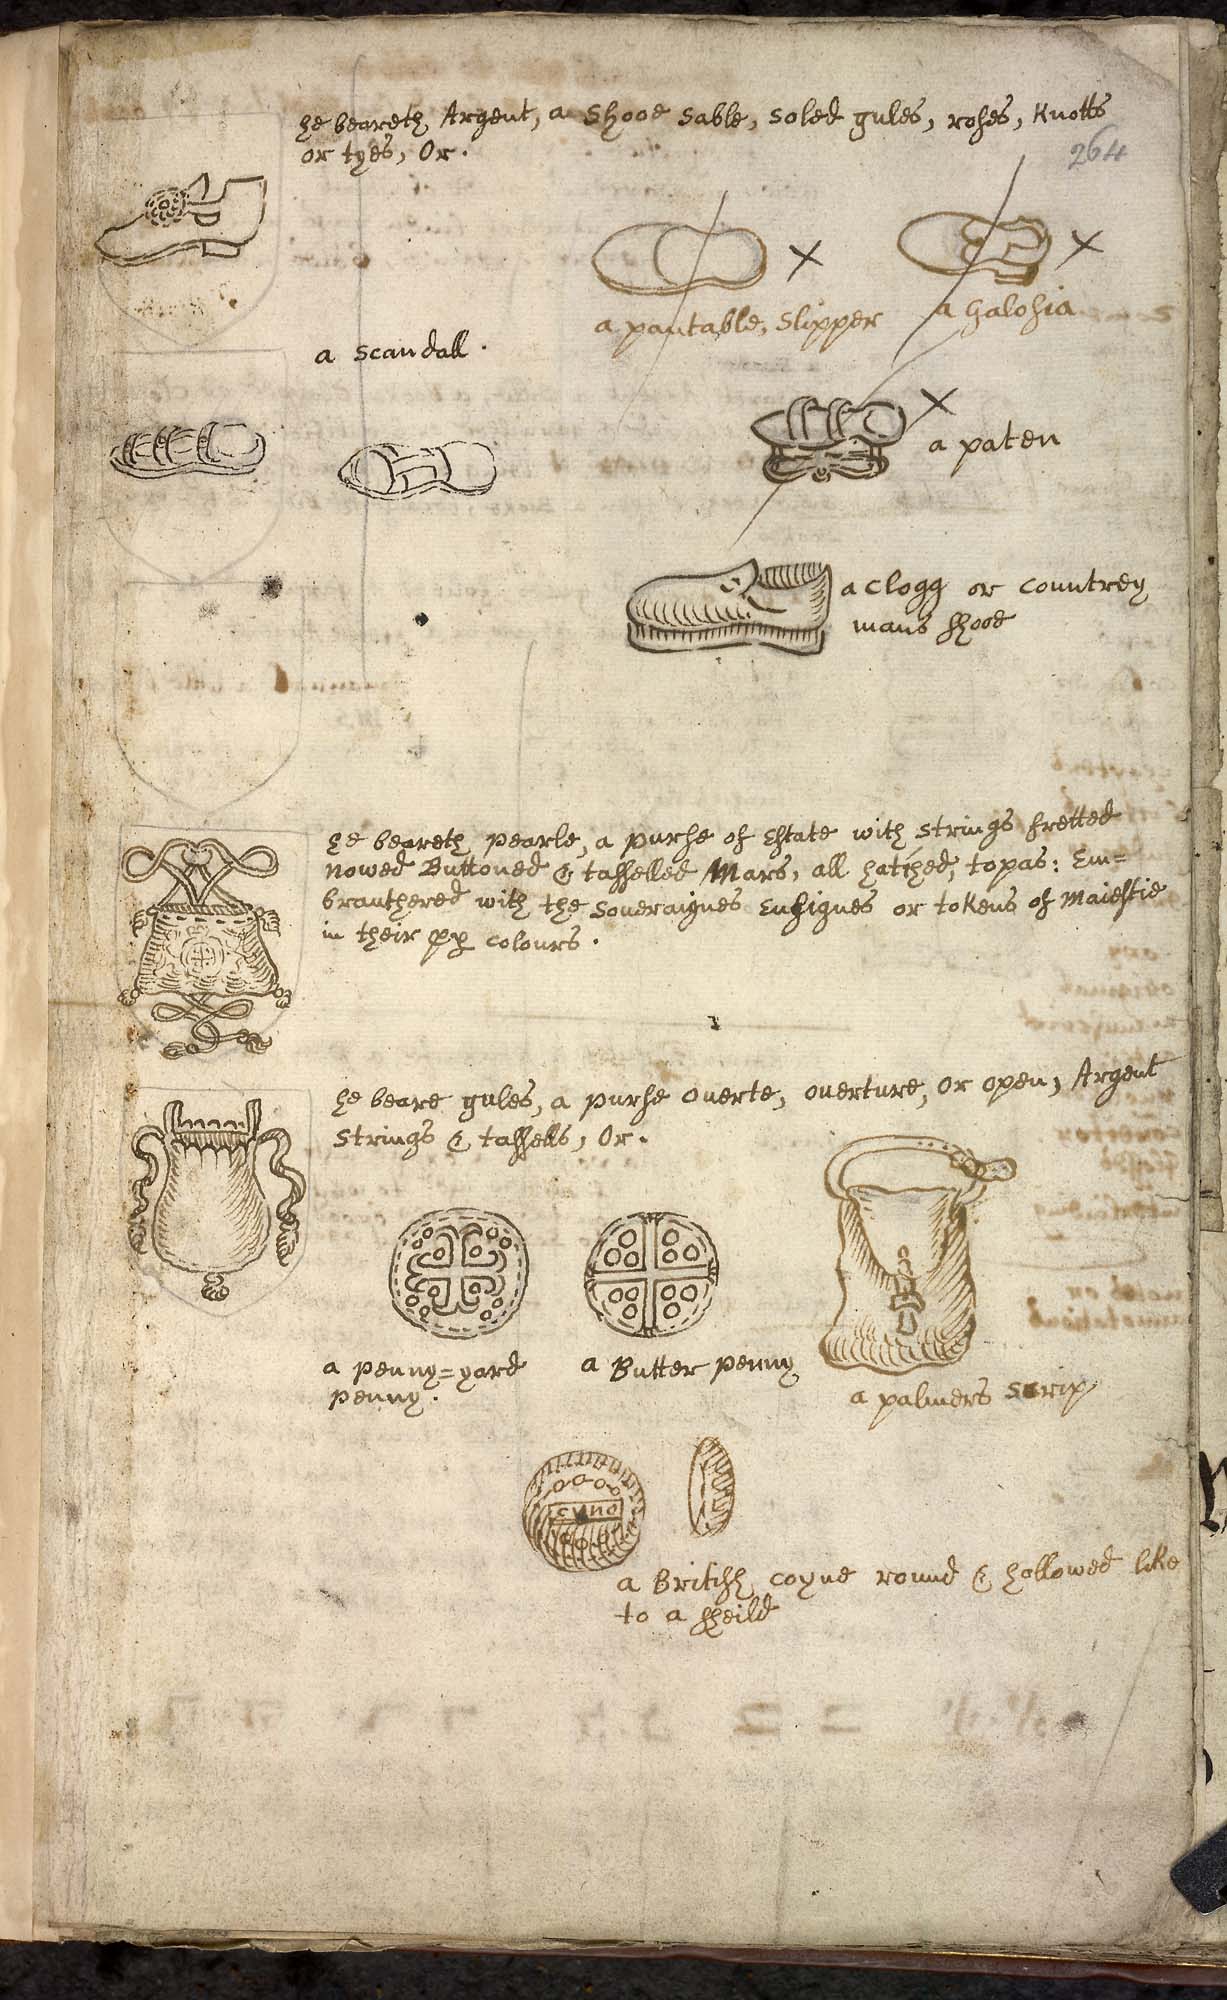 he beareth Argent, a Shooe Sable, Soled gules, roses, Knotts
or tyes, Or.
264
a pantable, Slipper
a Galosia
a Scandall.
a paten
a Clogg or Countrey
mans shooe
he beareth pearle, a purse of Estate with Strings fretted
nowed Buttoned & tasselled Mars, all hatched, topas: Em=
brauthered with the Soueraignes Ensignes or tokens of Maiestie
in their pp colours.
he beare gules, a purse ouerte, ouerture, or open, Argent
Strings & tassells, Or.
a penny=yard
penny.
a Butter penny
a palmers Scrip
CVNO
a British coyne round & hollowed like
to a sheild